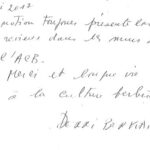 i 2017
motion toujours présente lors
revenir dans les murs
l'ACB.
Merci et longue vie
à la culture berbère